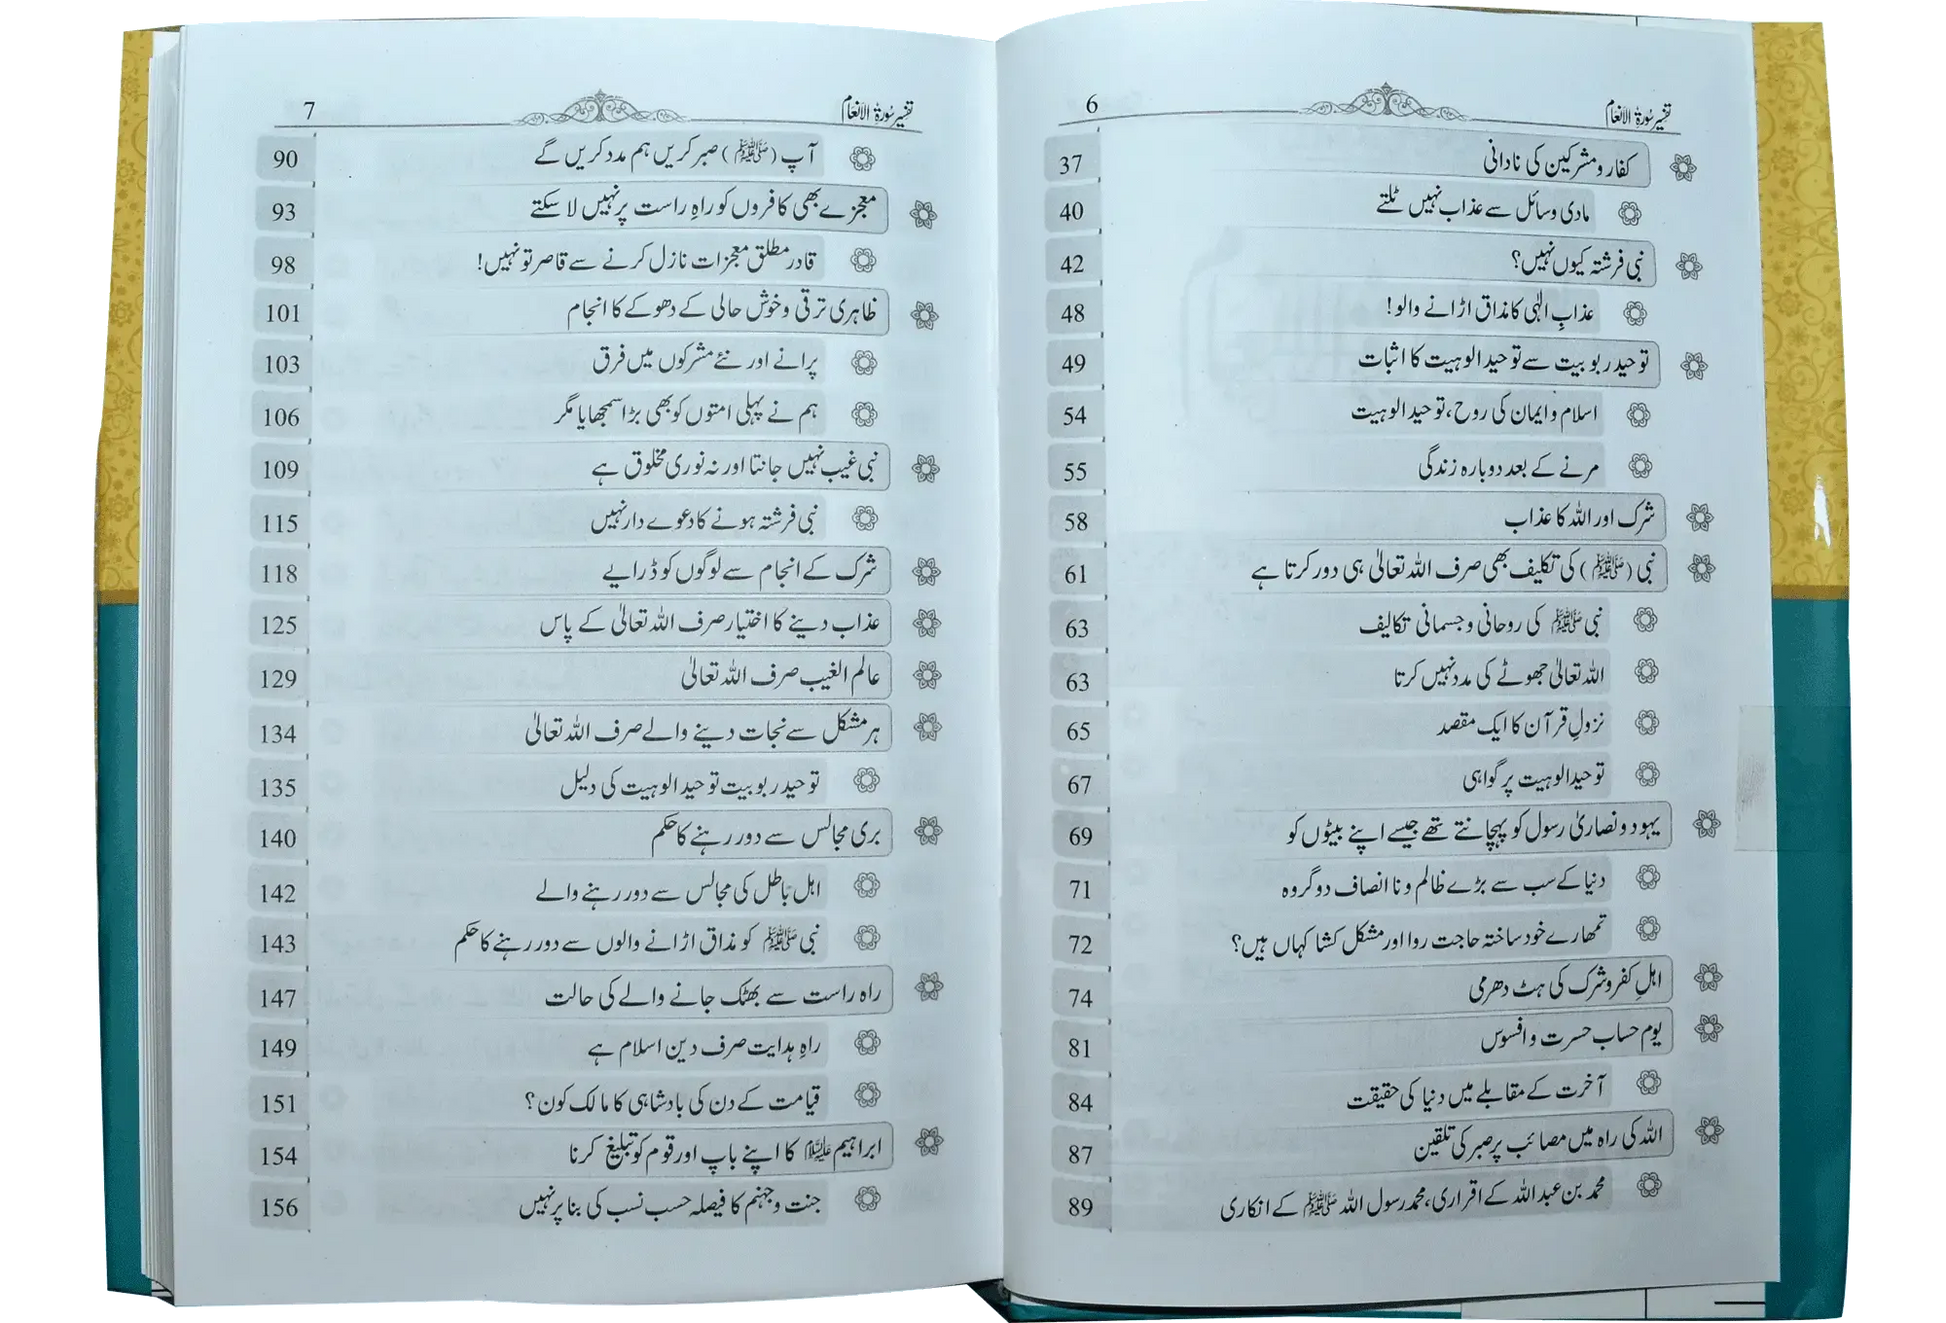 تفسیر سُورۃ الانعام 6
کفار و مشرکین کی نادانی 37
مادی وسائل سے عذاب نہیں ٹلتے 40
نبی فرشتہ کیوں نہیں؟ 42
عذابِ الٰہی کا مذاق اڑانے والو! 48
توحید ربوبیت سے توحید الوہیت کا اثبات 49
اسلام و ایمان کی روح، توحید الوہیت 54
مرنے کے بعد دوبارہ زندگی 55
شرک اور اللہ کا عذاب 58
نبی (ﷺ) کی تکلیف بھی صرف اللہ تعالیٰ ہی دور کرتا ہے 61
نبی ﷺ کی روحانی و جسمانی تکالیف 63
اللہ تعالیٰ جھوٹے کی مدد نہیں کرتا 63
نزولِ قرآن کا ایک مقصد 65
توحید الوہیت پر گواہی 67
یہود و نصاریٰ رسول کو پہچانتے تھے جیسے اپنے بیٹوں کو 69
دنیا کے سب سے بڑے ظالم و نا انصاف دو گروہ 71
تمھارے خود ساختہ حاجت روا اور مشکل کشا کہاں ہیں؟ 72
اہلِ کفر و شرک کی ہٹ دھرمی 74
یوم حساب حسرت و افسوس 81
آخرت کے مقابلے میں دنیا کی حقیقت 84
اللہ کی راہ میں مصائب پر صبر کی تلقین 87
محمد بن عبداللہ کے اقراری، محمد رسول اللہ ﷺ کے انکاری 89
تفسیر سُورۃ الانعام 7
آپ (ﷺ) صبر کریں ہم مدد کریں گے 90
معجزے بھی کافروں کو راہِ راست پر نہیں لا سکتے 93
قادر مطلق معجزات نازل کرنے سے قاصر تو نہیں! 98
ظاہری ترقی و خوش حالی کے دھوکے کا انجام 101
پرانے اور نئے مشرکوں میں فرق 103
ہم نے پہلی امتوں کو بھی بڑا سمجھایا مگر 106
نبی غیب نہیں جانتا اور نہ نوری مخلوق ہے 109
نبی فرشتہ ہونے کا دعوے دار نہیں 115
شرک کے انجام سے لوگوں کو ڈرایے 118
عذاب دینے کا اختیار صرف اللہ تعالیٰ کے پاس 125
عالم الغیب صرف اللہ تعالیٰ 129
ہر مشکل سے نجات دینے والے صرف اللہ تعالیٰ 134
توحید ربوبیت توحید الوہیت کی دلیل 135
بری مجالس سے دور رہنے کا حکم 140
اہل بَاطل کی مجالس سے دور رہنے والے 142
نبی ﷺ کو مذاق اڑانے والوں سے دور رہنے کا حکم 143
راہ راست سے بھٹک جانے والے کی حالت 147
راہِ ہدایت صرف دین اسلام ہے 149
قیامت کے دن کی بادشاہی کا مالک کون؟ 151
ابراہیم علیہ السلام کا اپنے باپ اور قوم کو تبلیغ کرنا 154
جنت و جہنم کا فیصلہ حسب نسب کی بنا پر نہیں 156